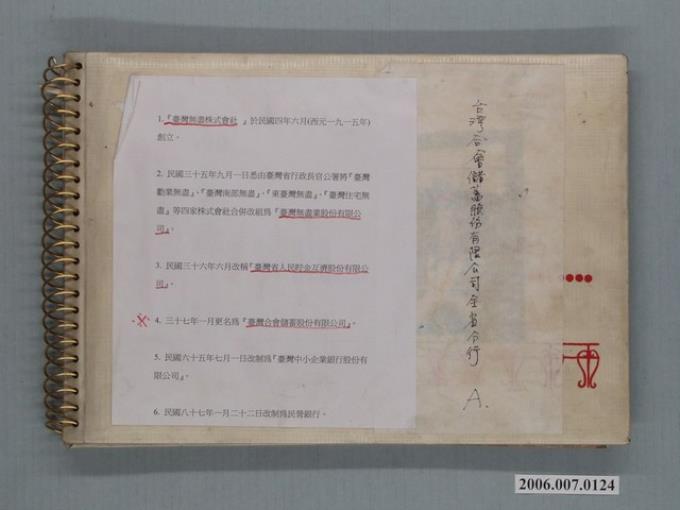 1.『臺灣無盡株式會社 』於民國四年六月(西元一九一五年)
創立。
2. 民國三十五年九月一日悉由臺灣省行政長官公署將『臺灣
勸業無盡』、『臺灣南部無盡』、『東臺灣無盡』、『臺灣住宅無
盡』等四家株式會社合併改組爲『臺灣無盡業股份有限公
司』。
3. 民國三十六年六月改稱『臺灣省人民貯金互濟股份有限公
司』。
4. 三十七年一月更名爲『臺灣合會儲蓄股份有限公司』。
5. 民國六十五年七月一日改制爲『臺灣中小企業銀行股份有
限公司』。
6. 民國八十七年一月二十二日改制爲民營銀行。
台灣合會儲蓄股份有限公司全省分行 A.
2006.007.0124